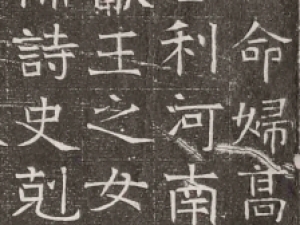 命婦高
利河南
獻王之女
詩史剋